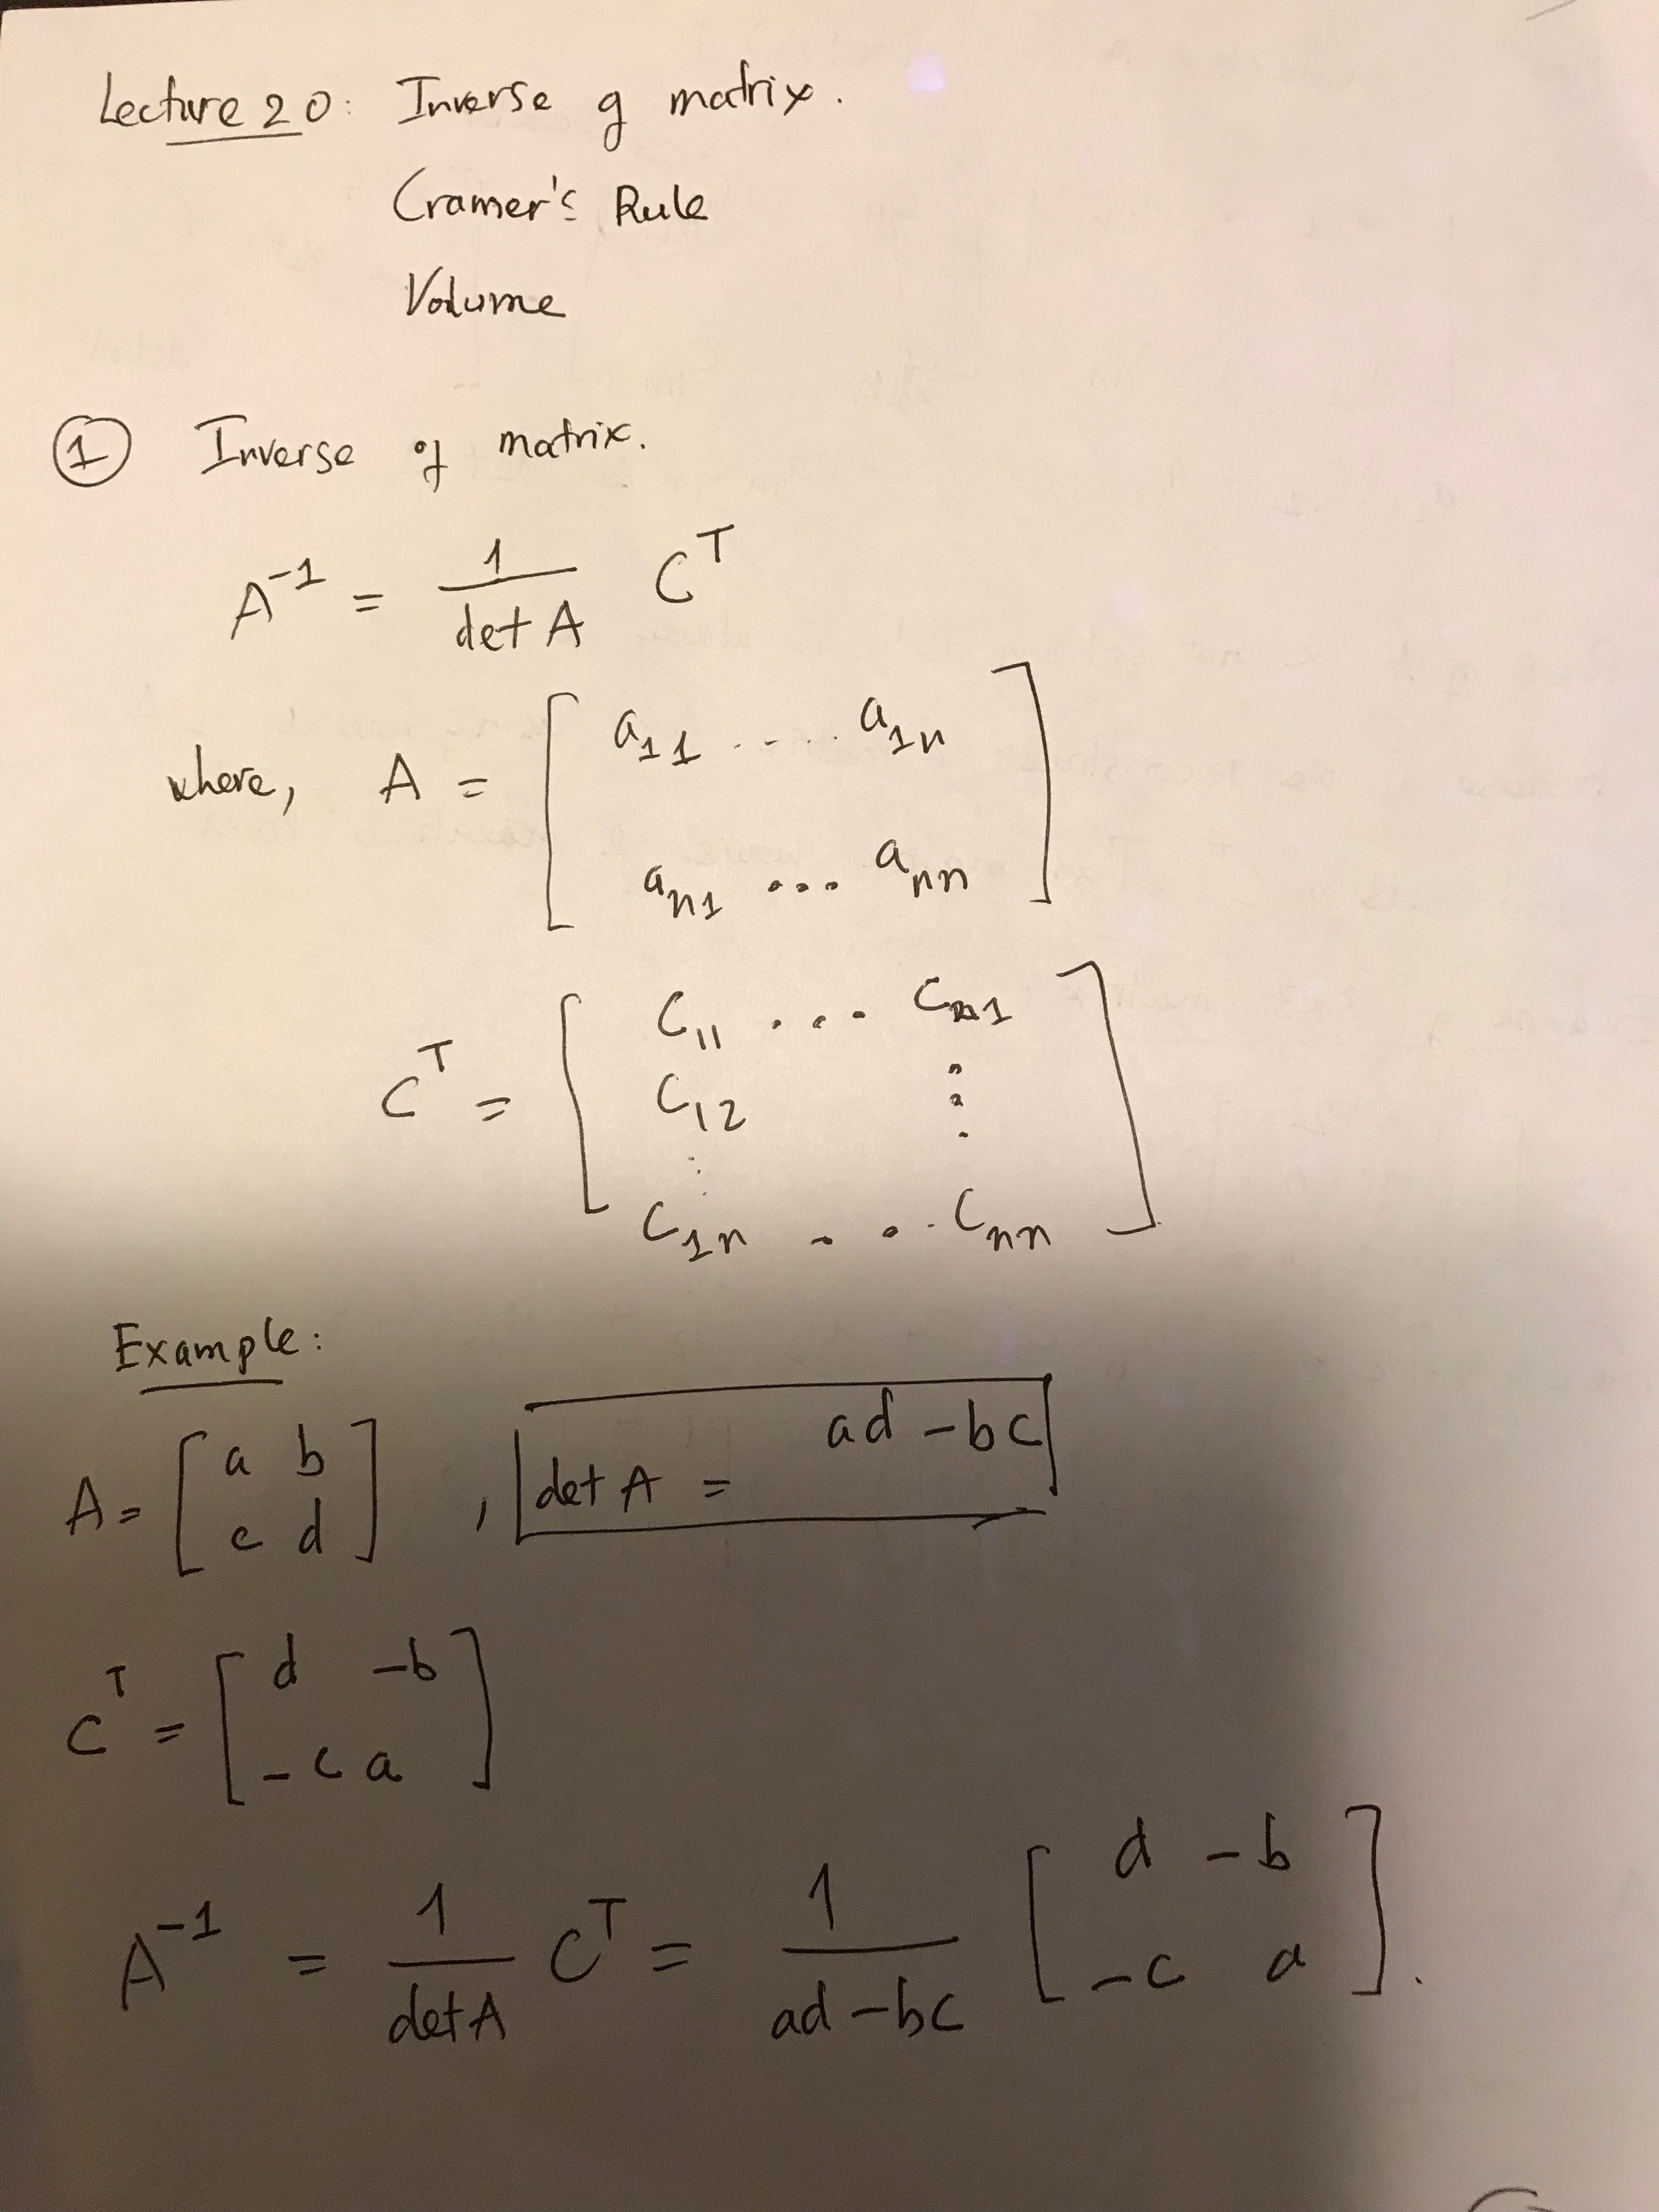 Lecture 20: Inverse of matrix.
Cramer's Rule
Volume
① Inverse of matrix.
A^{-1} = \frac{1}{det A} C^T
where, A = [ a_{11} .... a_{1n}
a_{n1} ... a_{nn} ]
C^T = [ C_{11} ... C_{n1}
C_{12} ⋮
⋮
C_{1n} ... C_{nn} ]
Example:
A = [ a b
c d ] , det A = ad - bc
C^T = [ d -b
-c a ]
A^{-1} = \frac{1}{det A} C^T = \frac{1}{ad-bc} [ d -b
-c a ].